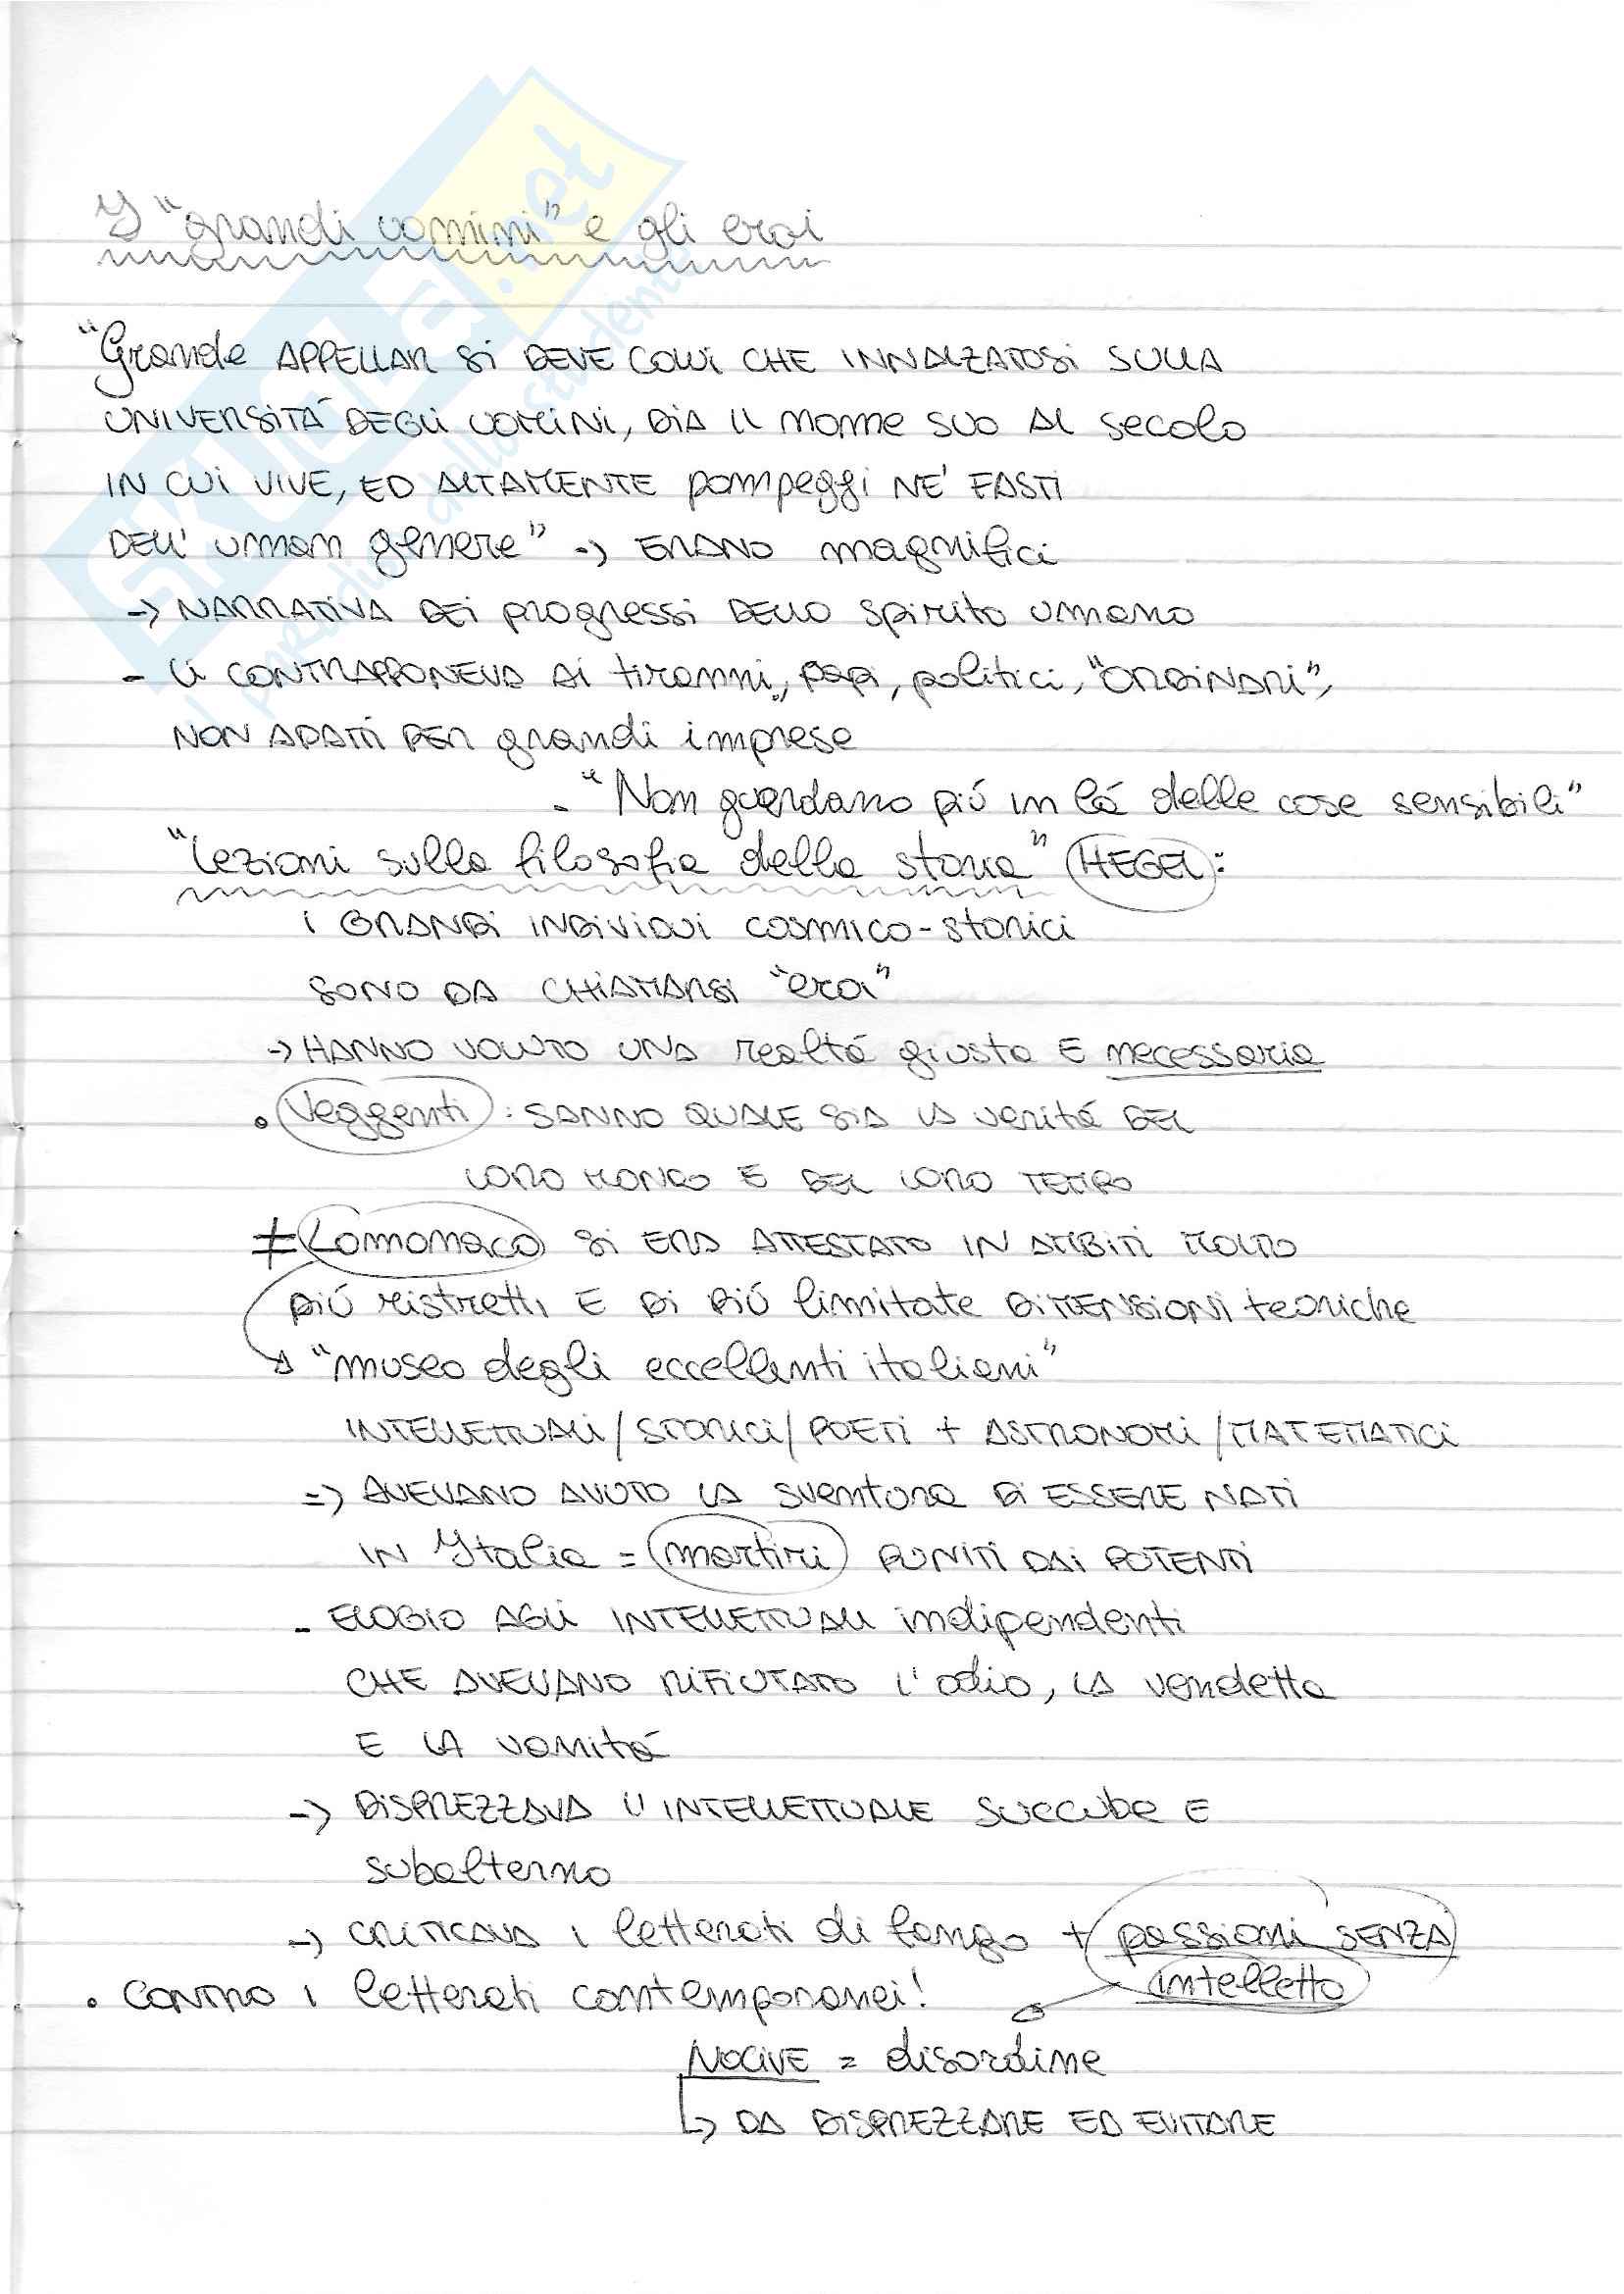 I "grandi uomini" e gli eroi
"Grande APPELLAR SI DEVE COLUI CHE INNALZATOSI SULLA
UNIVERSITÁ DEGLI UOMINI, DIA IL nome SUO AL secolo
IN CUI VIVE, ED ALTAMENTE pompeggi NE' FASTI
DELL' uman genere" -> ERANO magnifici
-> NARRATIVA DEI progressi DELLO spirito umano
- LI CONTRAPPONEVA AI tiranni, papi, politici, "ORDINARI",
NON ADATTI PER grandi imprese
- "Non guardano piú in lá delle cose sensibili"
"Lezioni sulla filosofia della storia" HEGEL:
I GRANDI INDIVIDUI cosmico-storici
SONO DA CHIAMARSI "eroi"
-> HANNO VOLUTO UNA realtá giusta E necessaria
• Veggenti: SANNO QUALE SIA LA veritá DEL
LORO MONDO E DEL LORO TEMPO
≠ Lomonaco SI ERA ATTESTATO IN AMBITI MOLTO
piú ristretti E DI PIÚ limitate DIMENSIONI teoriche
-> "museo degli eccellenti italiani"
INTELLETTUALI/STORICI/POETI + ASTRONOMI/MATEMATICI
=> AVEVANO AVUTO LA sventura DI ESSERE NATI
IN Italia = martiri PUNITI DAI POTENTI
- ELOGIO AGLI INTELLETTUALI indipendenti
CHE AVEVANO RIFIUTATO l'odio, LA vendetta
E LA vanitá
-> DISPREZZAVA L'INTELLETTUALE succube E
subalterno
-> CRITICAVA I letterati di fango + passioni SENZA
intelletto
• CONTRO I letterati contemporanei!
NOCIVE = disordine
-> DA DISPREZZARE ED EVITARE
SKUOLA.net